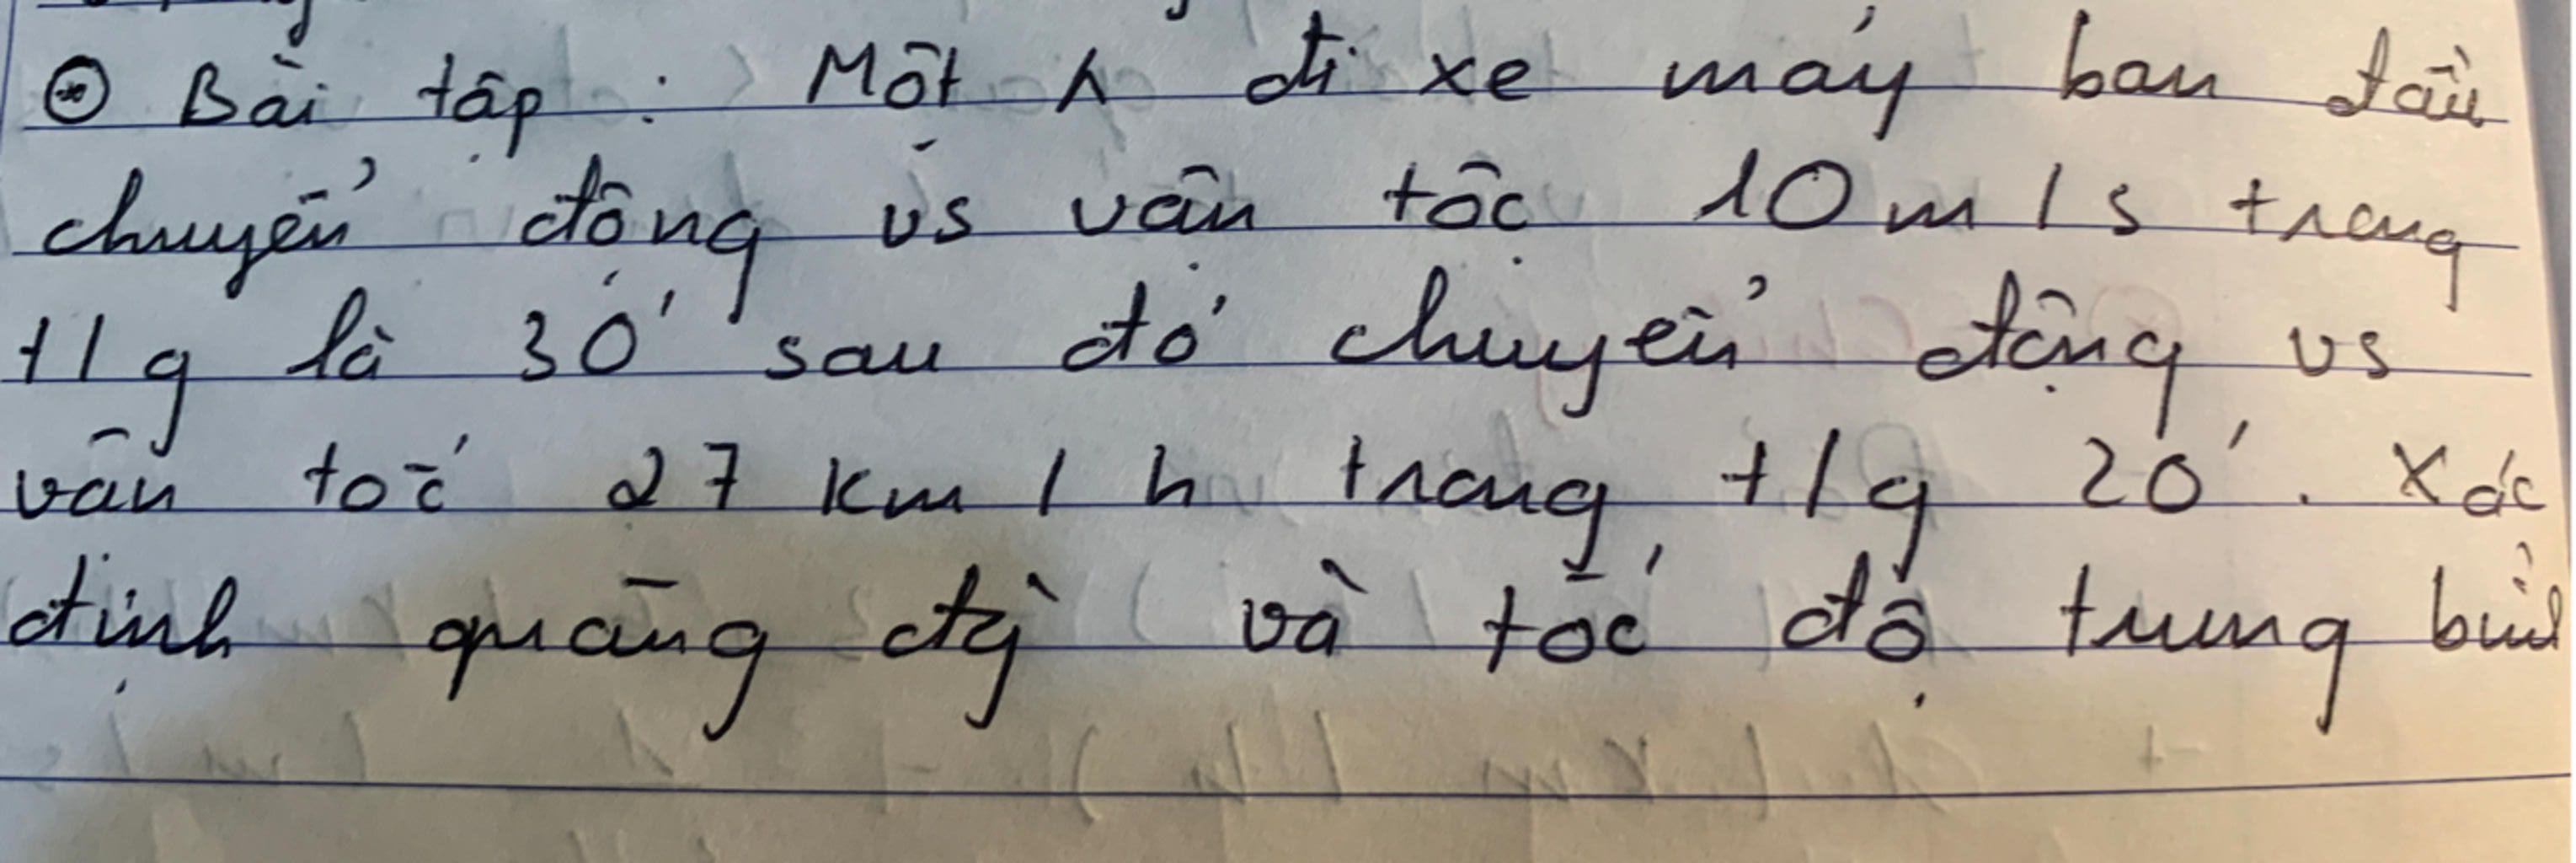 Bài tập : Một h đi xe máy ban đầu
chuyển động vs vận tốc 10 m/s trong
t/g là 30' sau đó chuyển động vs
vận tốc 27 km/h trong t/g 20'. Xác
định quãng đg và tốc độ trung bình